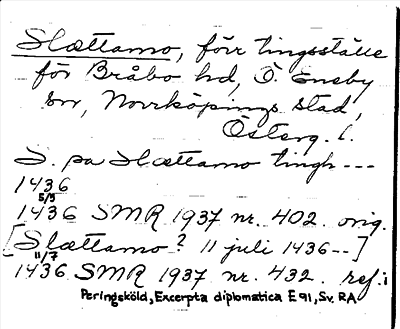 Slættamo, förr tingsställe
för Bråbo hd, Ö. Eneby
sn, Norrköpings stad,
Österg. l.
S. pa Slættamo tingh ---
1436
5/5
1436 SMR 1937 nr. 402. orig.
[Slættamo? 11 juli 1436--]
11/7
1436 SMR 1937 nr. 432. ref. i
Peringsköld, Excerpta diplomatica E 91, Sv. RA